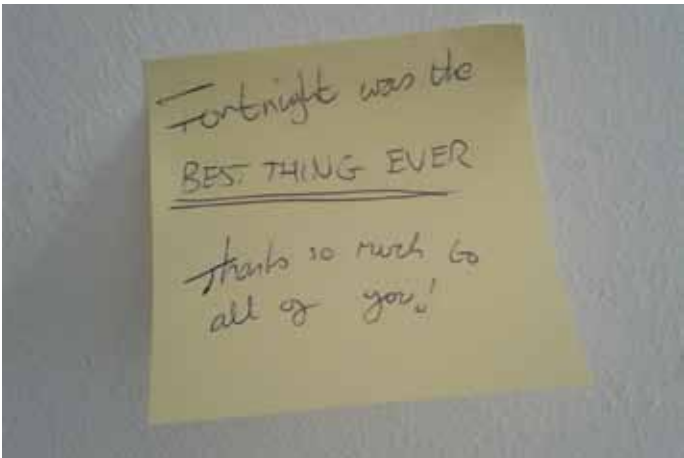 Fortnight was the
BEST THING EVER
Thanks so much to
all of you!